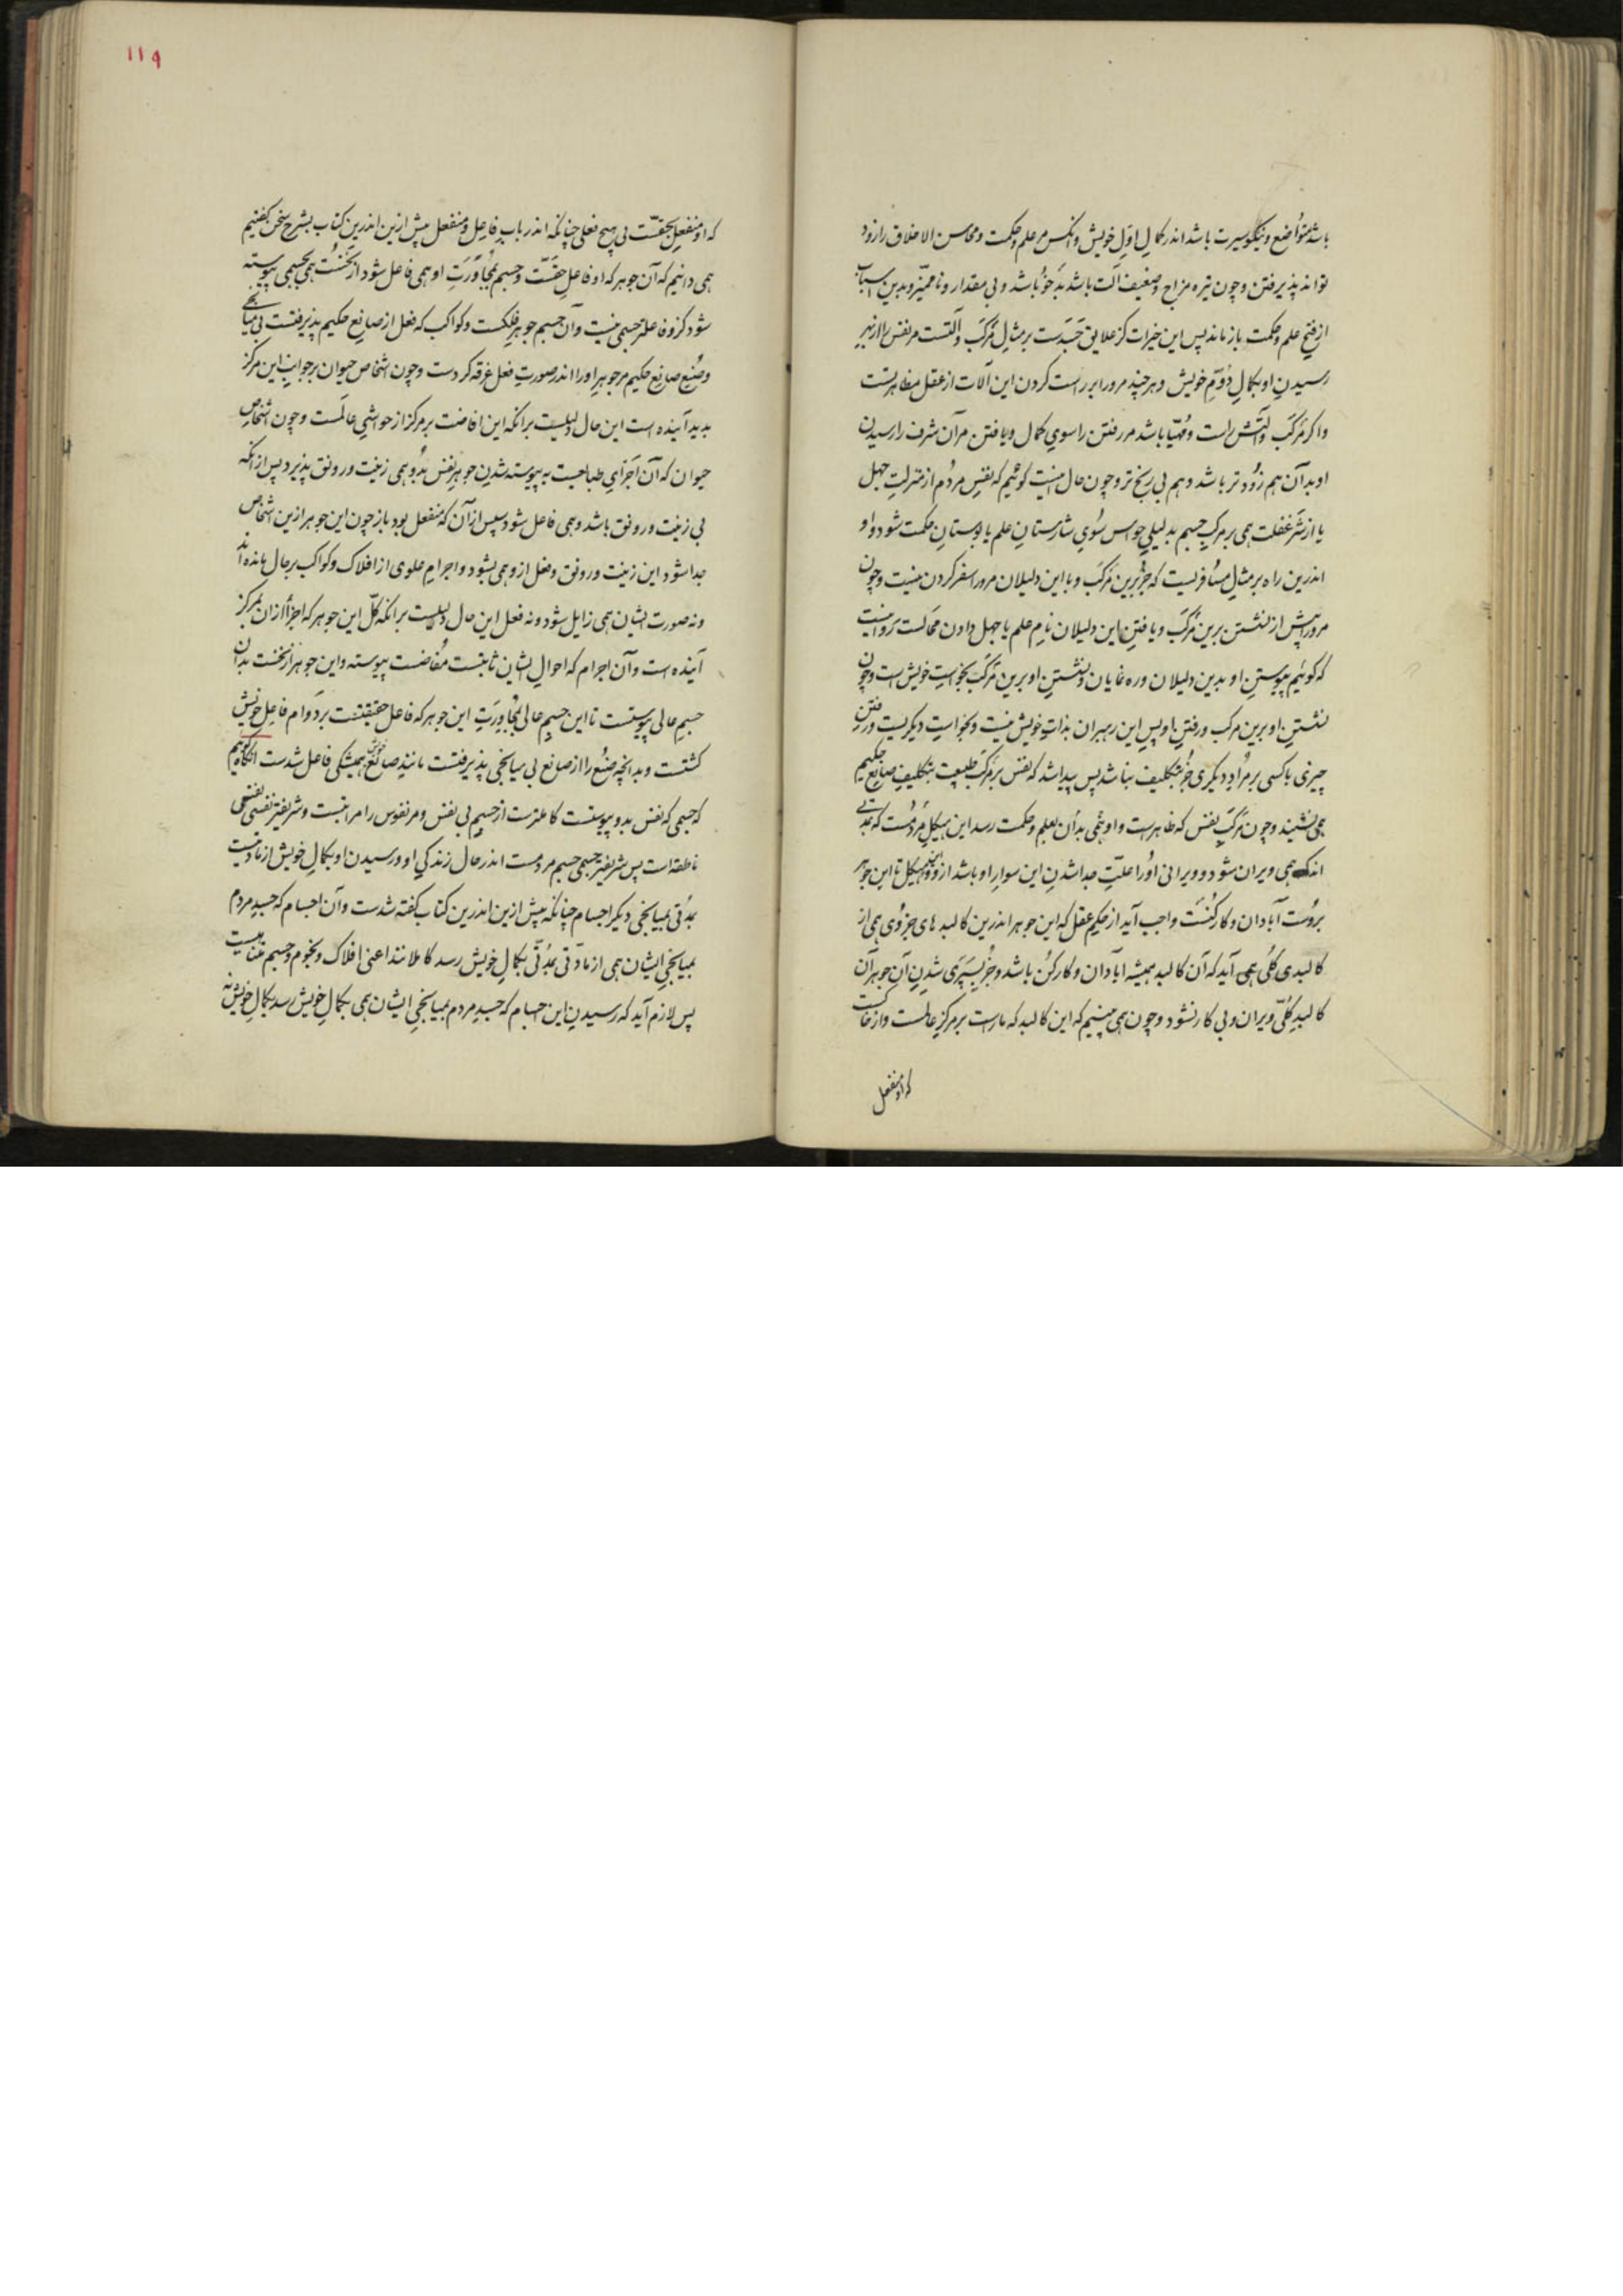 باشد متواضع و نیکو سیرت باشد اندر کمالِ اوّلِ خویش و انکس مر علم و حکمت و محاسن الاخلاق را زود
تواند پذیرفتن و چون تیره مزاج و ضعیف آلت باشد بدخو باشد و بی مقدار و نا ممیّز و بدین اسباب
از فتح علم و حکمت باز ماند پس این خیرات کز علایق جسدست بر مثال مرکب و آلتست مر نفس را از بهر
رسیدنِ او بکمالِ دوّمِ خویش و هرچند مرورا بر راست کردن این آلات از عقل مظاهرتست
و اکر مرکب و آلتش راست و مهیّا باشد مر رفتن را سوی کمال و یافتن مر آن شرف را رسیدن
او بدآن هم زودتر باشد و هم بی رنج تر و چون حال اینست کوئیم که نفسِ مردُم از منزلتِ جهل
یا از شرّ غفلت همی بر مرکبِ جسم بدلیلیِ حواس سُوی شارستانِ علم یا بوستانِ حکمت شود و او
اندرین راه بر مثالِ مسافریست که جُز برین مرکب و با این دلیلان مرورا سفر کردن نیست و چون
مرورا پیش از نشستن برین مرکب و یافتنِ این دلیلان نامِ علم یا جهل دادن محالست روا نیست
که کوئیم پیوستنِ او بدین دلیلان و ره نمایان و نشستنِ او برین مرکب بخواستِ خویش است و چون
نشستنِ او برین مرکب و رفتنِ او پسِ این رهبران بذاتِ خویش نیست و بخواستِ دیکریست و رفتنِ
چیزی یا کسی بر مرادِ دیکری جُز بتکلیف نباشد پس پیدا شد که نفس بر مرکبِ طبیعت بتکلیفِ صانعِ حکیم
همی نشیند و چون مرکبِ نفس که ظاهرست و او همی بدان بعلم و حکمت رسد این هیکلِ مردُمست که بمدّتی
اندک همی ویران شود و ویرانی اورا علّت جدا شدنِ این سوارِ او باشد ازو و این هیکل تا این جوهر
بروست آبادان و کارکنُست واجب آید از حکمِ عقل که این جوهر اندرین کالبد های جزوی همی از
کالبدی کلّی همی آید که آن کالبد همیشه ابادان و کارکنُ باشد و جُز بسپری شدنِ آن جوهر آن
کالبدِ کلّی ویران و بی کار نشود و چون همی بینیم که این کالبد که ماراست بر مرکزِ عالمست و از خاکست
که او منفعل
١١٩
که او منفعلِ بحقّست بی هیچ فعلی چنانکه اندر بابِ فاعل و منفعل پیش ازین اندرین کتاب بشرح سخن کفتیم
همی دانیم که آن جوهر که او فاعلِ حقّست و جسم بمجاورتِ او همی فاعل شود از نخست همی بجسمی پیوسته
شود کزو فاعلتر جسمی نیست و آن جسم جوهرِ فلکست و کواکب که فعل از صانعِ حکیم پذیرفتست بی میانجی
و صُنعِ صانعِ حکیم مر جوهرِ اورا اندر صورتِ فعل غرقه کردست و چون اشخاصِ حیوان بر جوانبِ این مرکز
بدید آینده است این حال دلیلست برانکه این افاضت بر مرکز از حواشیِ عالمست و چون اشخاصِ
حیوان که آن اجزایِ طبایعست به پیوسته شدنِ جوهرِ نفس بدُو همی زینت و رونق پذیرد پس از انکه
بی زینت و رونق باشد و همی فاعل شود سپس از آن که منفعل بود باز چون این جوهر ازین اشخاص
جدا شود این زینت و رونق و فعل ازو همی بشود و اجرامِ علوی از افلاک و کواکب بر حال مانده اند
و نه صورتِ ایشان همی زایل شود و نه فعل این حال دلیلست برانکه کلّ این جوهر که اجزأ ازان بمرکز
آینده است و آن اجرام که احوالِ ایشان ثابتست مُفاضست پیوسته و این جوهر از نخست بدان
جسمِ عالی پیوستست تا این جسمِ عالی بمجاورتِ این جوهر که فاعلِ حقیقتست بر دوام فاعلِ خویش
کشتست و بدانچه صُنع را از صانع بی میانجی پذیرفتست مانندِ صانعِ خویش همیشکی فاعل شدست انکاه کوئیم
که جسمی که نفس بدو پیوستست کاملترست از جسمِ بی نفس و مر نفوس را مراتبست و شریفتر نفسی نفسِ
ناطقه است پس شریفتر جسمی جسمِ مردمست اندر حال زندکی او و رسیدنِ او بکمالِ خویش از مادتیست
بمُدّتی بمیانجی دیکر اجسام چنانکه پیش ازین اندرین کتاب کفته شدست و آن اجسام که جسدِ مردم
بمیانجی ایشان همی از مادّتی بمُدّتی بکمالِ خویش رسد کاملانند اعنی افلاک و نجوم و جسم متناهیست
پس لازم آید که رسیدنِ این اجسام که جسدِ مردم بمیانجیِ ایشان همی بکمالِ خویش رسد بکمالِ خویش نه